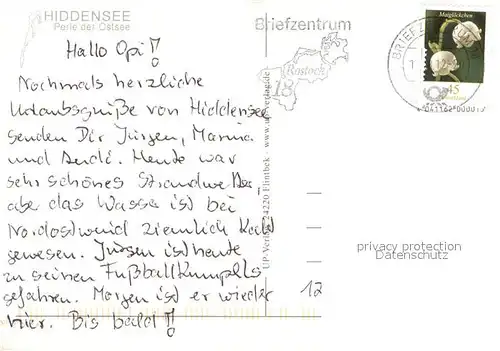 HIDDENSEE
Perle der Ostsee
Hallo Opi!
Nochmals herzliche
Urlaubsgrüße von Hiddensee
senden Dir Jürgen, Marina
und Andi. Heute war
sehr schönes Strandwetter,
aber das Wasser ist bei
Nordostwind ziemlich kalt
gewesen. Jürgen ist heute
zu seinen Fußballkumpels
gefahren. Morgen ist er wieder
hier. Bis bald!
Briefzentrum
Rostock
18
BRIEFZENTRUM
Maiglöckchen
45
UP-Verlag 24220 Flintbek
privacy protection
Datenschutz
12